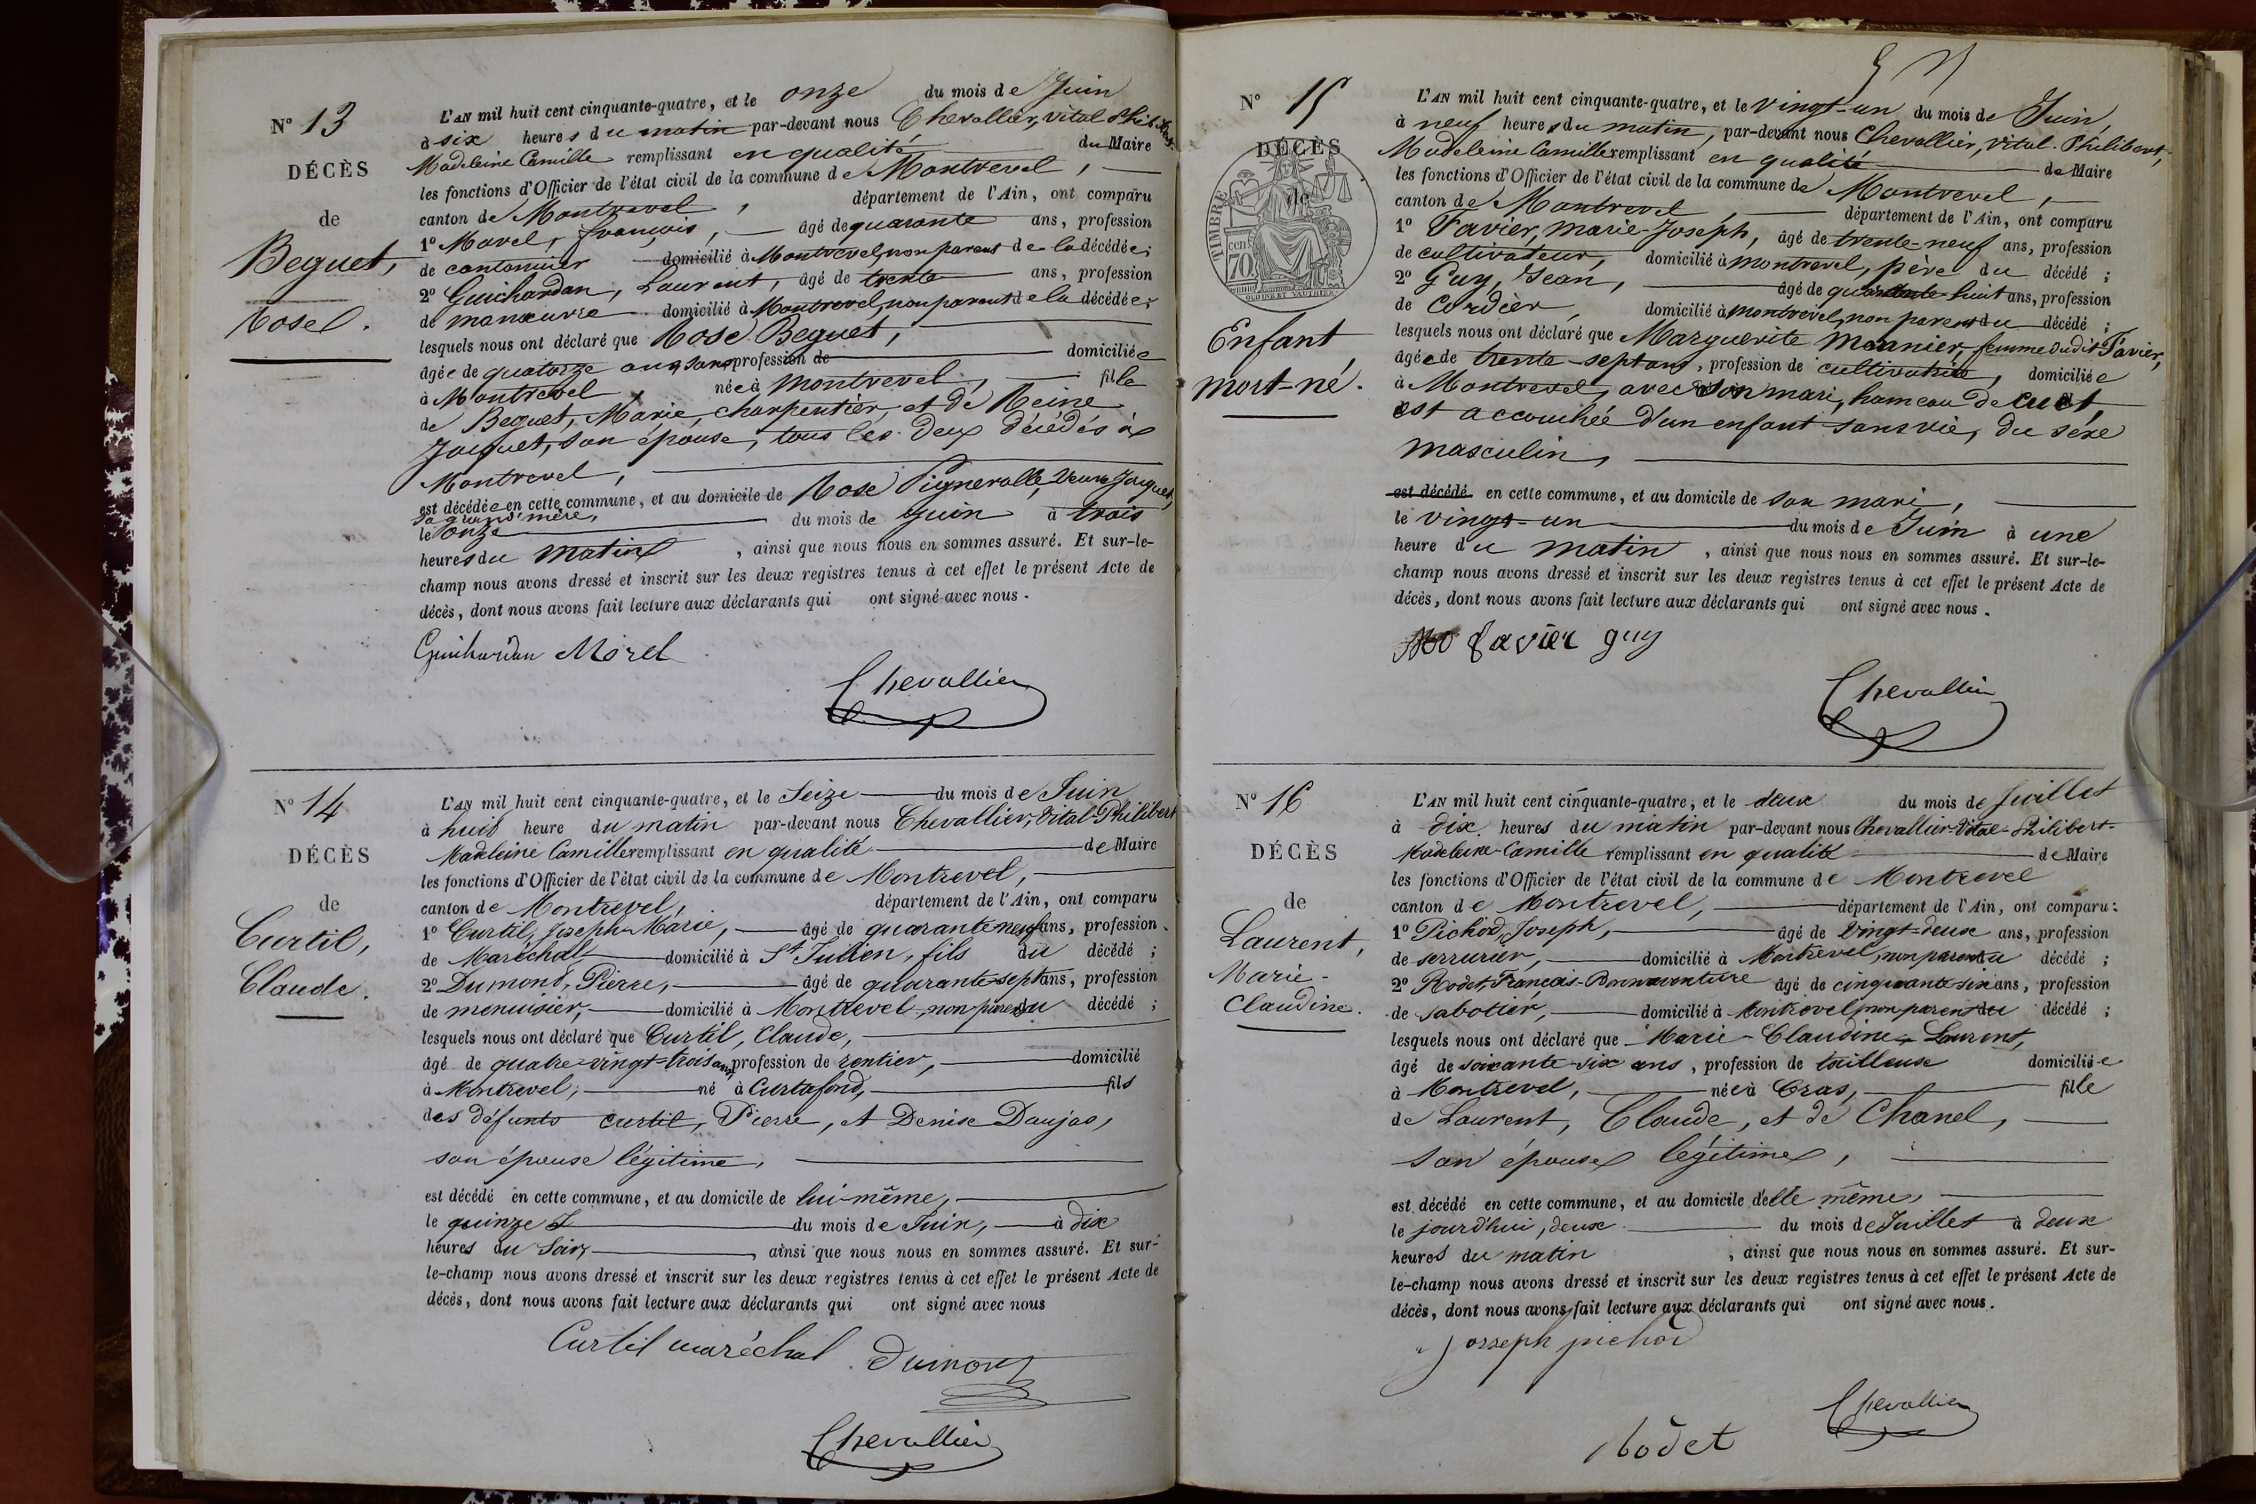 N° 13
DÉCÈS
de
Beguet,
Rose.
L'AN mil huit cent cinquante-quatre, et le onze du mois de Juin
à six heures du matin par-devant nous Chevallier, vital Philibert
Madeleine Camille remplissant en qualité du Maire
les fonctions d'Officier de l'état civil de la commune de Montrevel,
canton de Montrevel, département de l'Ain, ont comparu
1° Morel, françois, âgé de quarante ans, profession
de cantonnier domicilié à Montrevel, non parent de la décédée;
2° Guichardan, Laurent, âgé de trente ans, profession
de manœuvre domicilié à Montrevel, non parent de la décédée;
lesquels nous ont déclaré que Rose Beguet,
âgée de quatorze ans, sans profession de domiciliée
à Montrevel née à Montrevel, fille
de Beguet, Marie, charpentier, et de Reine
Jacquet, son épouse, tous les deux décédés à
Montrevel,
est décédée en cette commune, et au domicile de Rose Pigneralle, Veuve Jacquet,
sa grand'mère,
le onze du mois de Juin à trois
heures du matin, ainsi que nous nous en sommes assuré. Et sur-le-
champ nous avons dressé et inscrit sur les deux registres tenus à cet effet le présent Acte de
décès, dont nous avons fait lecture aux déclarants qui ont signé avec nous.
Guichardan Morel
Chevallier
N° 14
DÉCÈS
de
Curtil,
Claude.
L'AN mil huit cent cinquante-quatre, et le Seize du mois de Juin
à huit heure du matin par-devant nous Chevallier, Vital-Philibert
Madeleine Camille remplissant en qualité de Maire
les fonctions d'Officier de l'état civil de la commune de Montrevel,
canton de Montrevel, département de l'Ain, ont comparu
1° Curtil, Joseph-Marie, âgé de quarante-neuf ans, profession
de Maréchal domicilié à St Julien, fils du décédé ;
2° Dumond, Pierre, âgé de quarante-sept ans, profession
de menuisier, domicilié à Montrevel, non parent du décédé ;
lesquels nous ont déclaré que Curtil, Claude,
âgé de quatre-vingt-trois ans, profession de rentier, domicilié
à Montrevel, né à Curtafond, fils
des défunts Curtil, Pierre, et Denise Daujas,
son épouse légitime,
est décédé en cette commune, et au domicile de lui-même,
le quinze du mois de Juin, à dix
heures du Soir, ainsi que nous nous en sommes assuré. Et sur-
le-champ nous avons dressé et inscrit sur les deux registres tenus à cet effet le présent Acte de
décès, dont nous avons fait lecture aux déclarants qui ont signé avec nous
Curtil maréchal Dumont
Chevallier
N° 15
DÉCÈS
de
TIMBRE
cent
70
Enfant
mort-né.
L'AN mil huit cent cinquante-quatre, et le vingt-un du mois de Juin,
à neuf heures du matin, par-devant nous Chevallier, vital-Philibert,
Madeleine Camille remplissant en qualité de Maire
les fonctions d'Officier de l'état civil de la commune de Montrevel,
canton de Montrevel, département de l'Ain, ont comparu
1° Favier, marie-Joseph, âgé de trente-neuf ans, profession
de cultivateur, domicilié à montrevel, père du décédé ;
2° Guy, Jean, âgé de quarante-huit ans, profession
de Cordier, domicilié à montrevel, non parent du décédé ;
lesquels nous ont déclaré que Marguerite Meunier, femme dudit Favier,
âgée de trente-sept ans, profession de cultivatrice, domiciliée
à Montrevel, avec son mari, hameau de Cuet,
est accouchée d'un enfant sans vie, du sexe
masculin,
est décédé en cette commune, et au domicile de son mari,
le vingt-un du mois de Juin à une
heure du matin, ainsi que nous nous en sommes assuré. Et sur-le-
champ nous avons dressé et inscrit sur les deux registres tenus à cet effet le présent Acte de
décès, dont nous avons fait lecture aux déclarants qui ont signé avec nous.
favier guy
Chevallier
N° 16
DÉCÈS
de
Laurent,
Marie-
Claudine.
L'AN mil huit cent cinquante-quatre, et le deux du mois de Juillet
à dix heures du matin par-devant nous Chevallier Vital-Philibert-
Madeleine-Camille remplissant en qualité de Maire
les fonctions d'Officier de l'état civil de la commune de Montrevel
canton de Montrevel, département de l'Ain, ont comparu:
1° Pichod, Joseph, âgé de Vingt-deux ans, profession
de serrurier, domicilié à Montrevel, non parent du décédé ;
2° Rodet, François-Bonnaventure âgé de cinquante-six ans, profession
de sabotier, domicilié à Montrevel, non parent du décédé ;
lesquels nous ont déclaré que Marie-Claudine Laurent,
âgé de soixante-six ans, profession de tailleuse domiciliée
à Montrevel, née à Cras, fille
de Laurent, Claude, et de Chanel,
son épouse légitime,
est décédé en cette commune, et au domicile d'elle même,
le jourd'hui, deux du mois de Juillet à deux
heures du matin, ainsi que nous nous en sommes assuré. Et sur-
le-champ nous avons dressé et inscrit sur les deux registres tenus à cet effet le présent Acte de
décès, dont nous avons fait lecture aux déclarants qui ont signé avec nous.
josseph pichod
Chevallier
Rodet